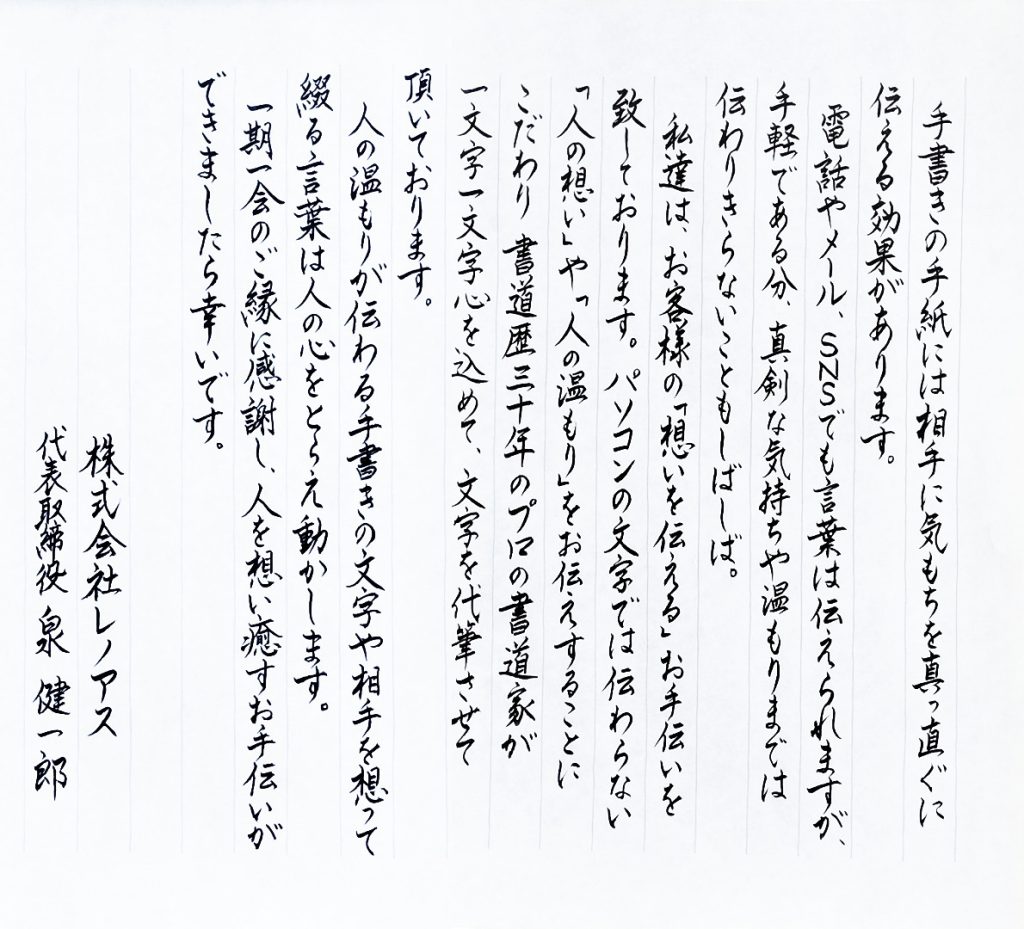 手書きの手紙には相手に気もちを真っ直ぐに
伝える効果があります。
電話やメール、SNSでも言葉は伝えられますが、
手軽である分、真剣な気持ちや温もりまでは
伝わりきらないこともしばしば。
私達は、お客様の「想いを伝える」お手伝いを
致しております。パソコンの文字では伝わらない
「人の想い」や「人の温もり」をお伝えすることに
こだわり 書道歴三十年のプロの書道家が
一文字一文字心を込めて、文字を代筆させて
頂いております。
人の温もりが伝わる手書きの文字や相手を想って
綴る言葉は人の心をとらえ動かします。
一期一会のご縁に感謝し、人を想い癒すお手伝いが
できましたら幸いです。
株式会社レノアス
代表取締役 泉 健一郎